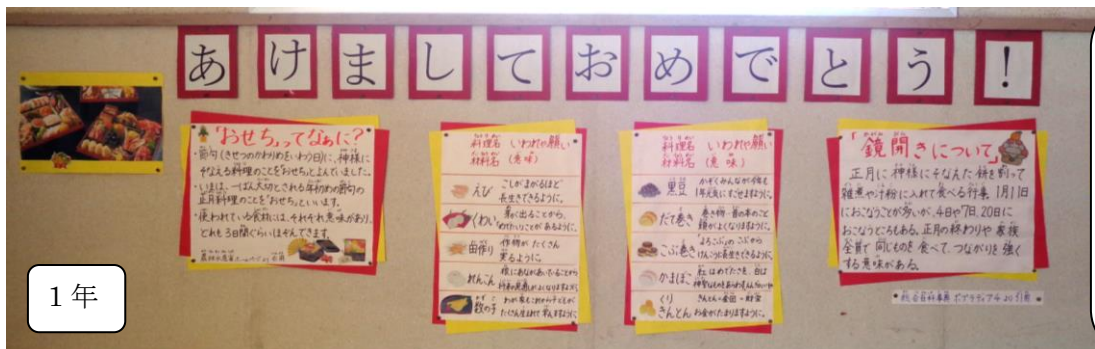 あけましておめでとう！
「おせち」ってなぁに？
・節句(きせつのかわりめをいわう日)に、神様に
そなえる料理のことを「おせち」とよんでいました。
・いまは、一ばん大切とされる年初めの節句の
正月料理のことを「おせち」といいます。
・使われている食材には、それぞれ意味があり、
どれも3日間ぐらいほぞんできます。
料理名 いわれや願い
材料名 (意味)
えび こしがまがるほど
長生きできるように。
くわい 芽が出ることから、
めでたいことがあるように。
田作り 作物がたくさん
実るように。
れんこん 穴にあながあいていることから
数の子
料理名 いわれや願い
材料名 (意味)
黒豆 かぞくみんなが今年も
1年元気にすごせますように。
だて巻き 巻き物=昔の本のこと
頭がよくなりますように。
こぶ巻き よろこぶの「こぶ」から
けんこう長生きできるように。
かまぼこ 紅はめでたさを、白は
くり きんとん=金団=財宝
きんとん お金がたまりますように。
「鏡開きについて」
正月に神様にそなえた餅を割って
雑煮や汁粉に入れて食べる行事。1月11日
におこなうことが多いが、4日や7日、20日に
おこなうところもある。正月の終わりや家族
全員で同じものを食べて、つながりを強く
する意味がある。
総合百科事典ポプラディアより引用
1年